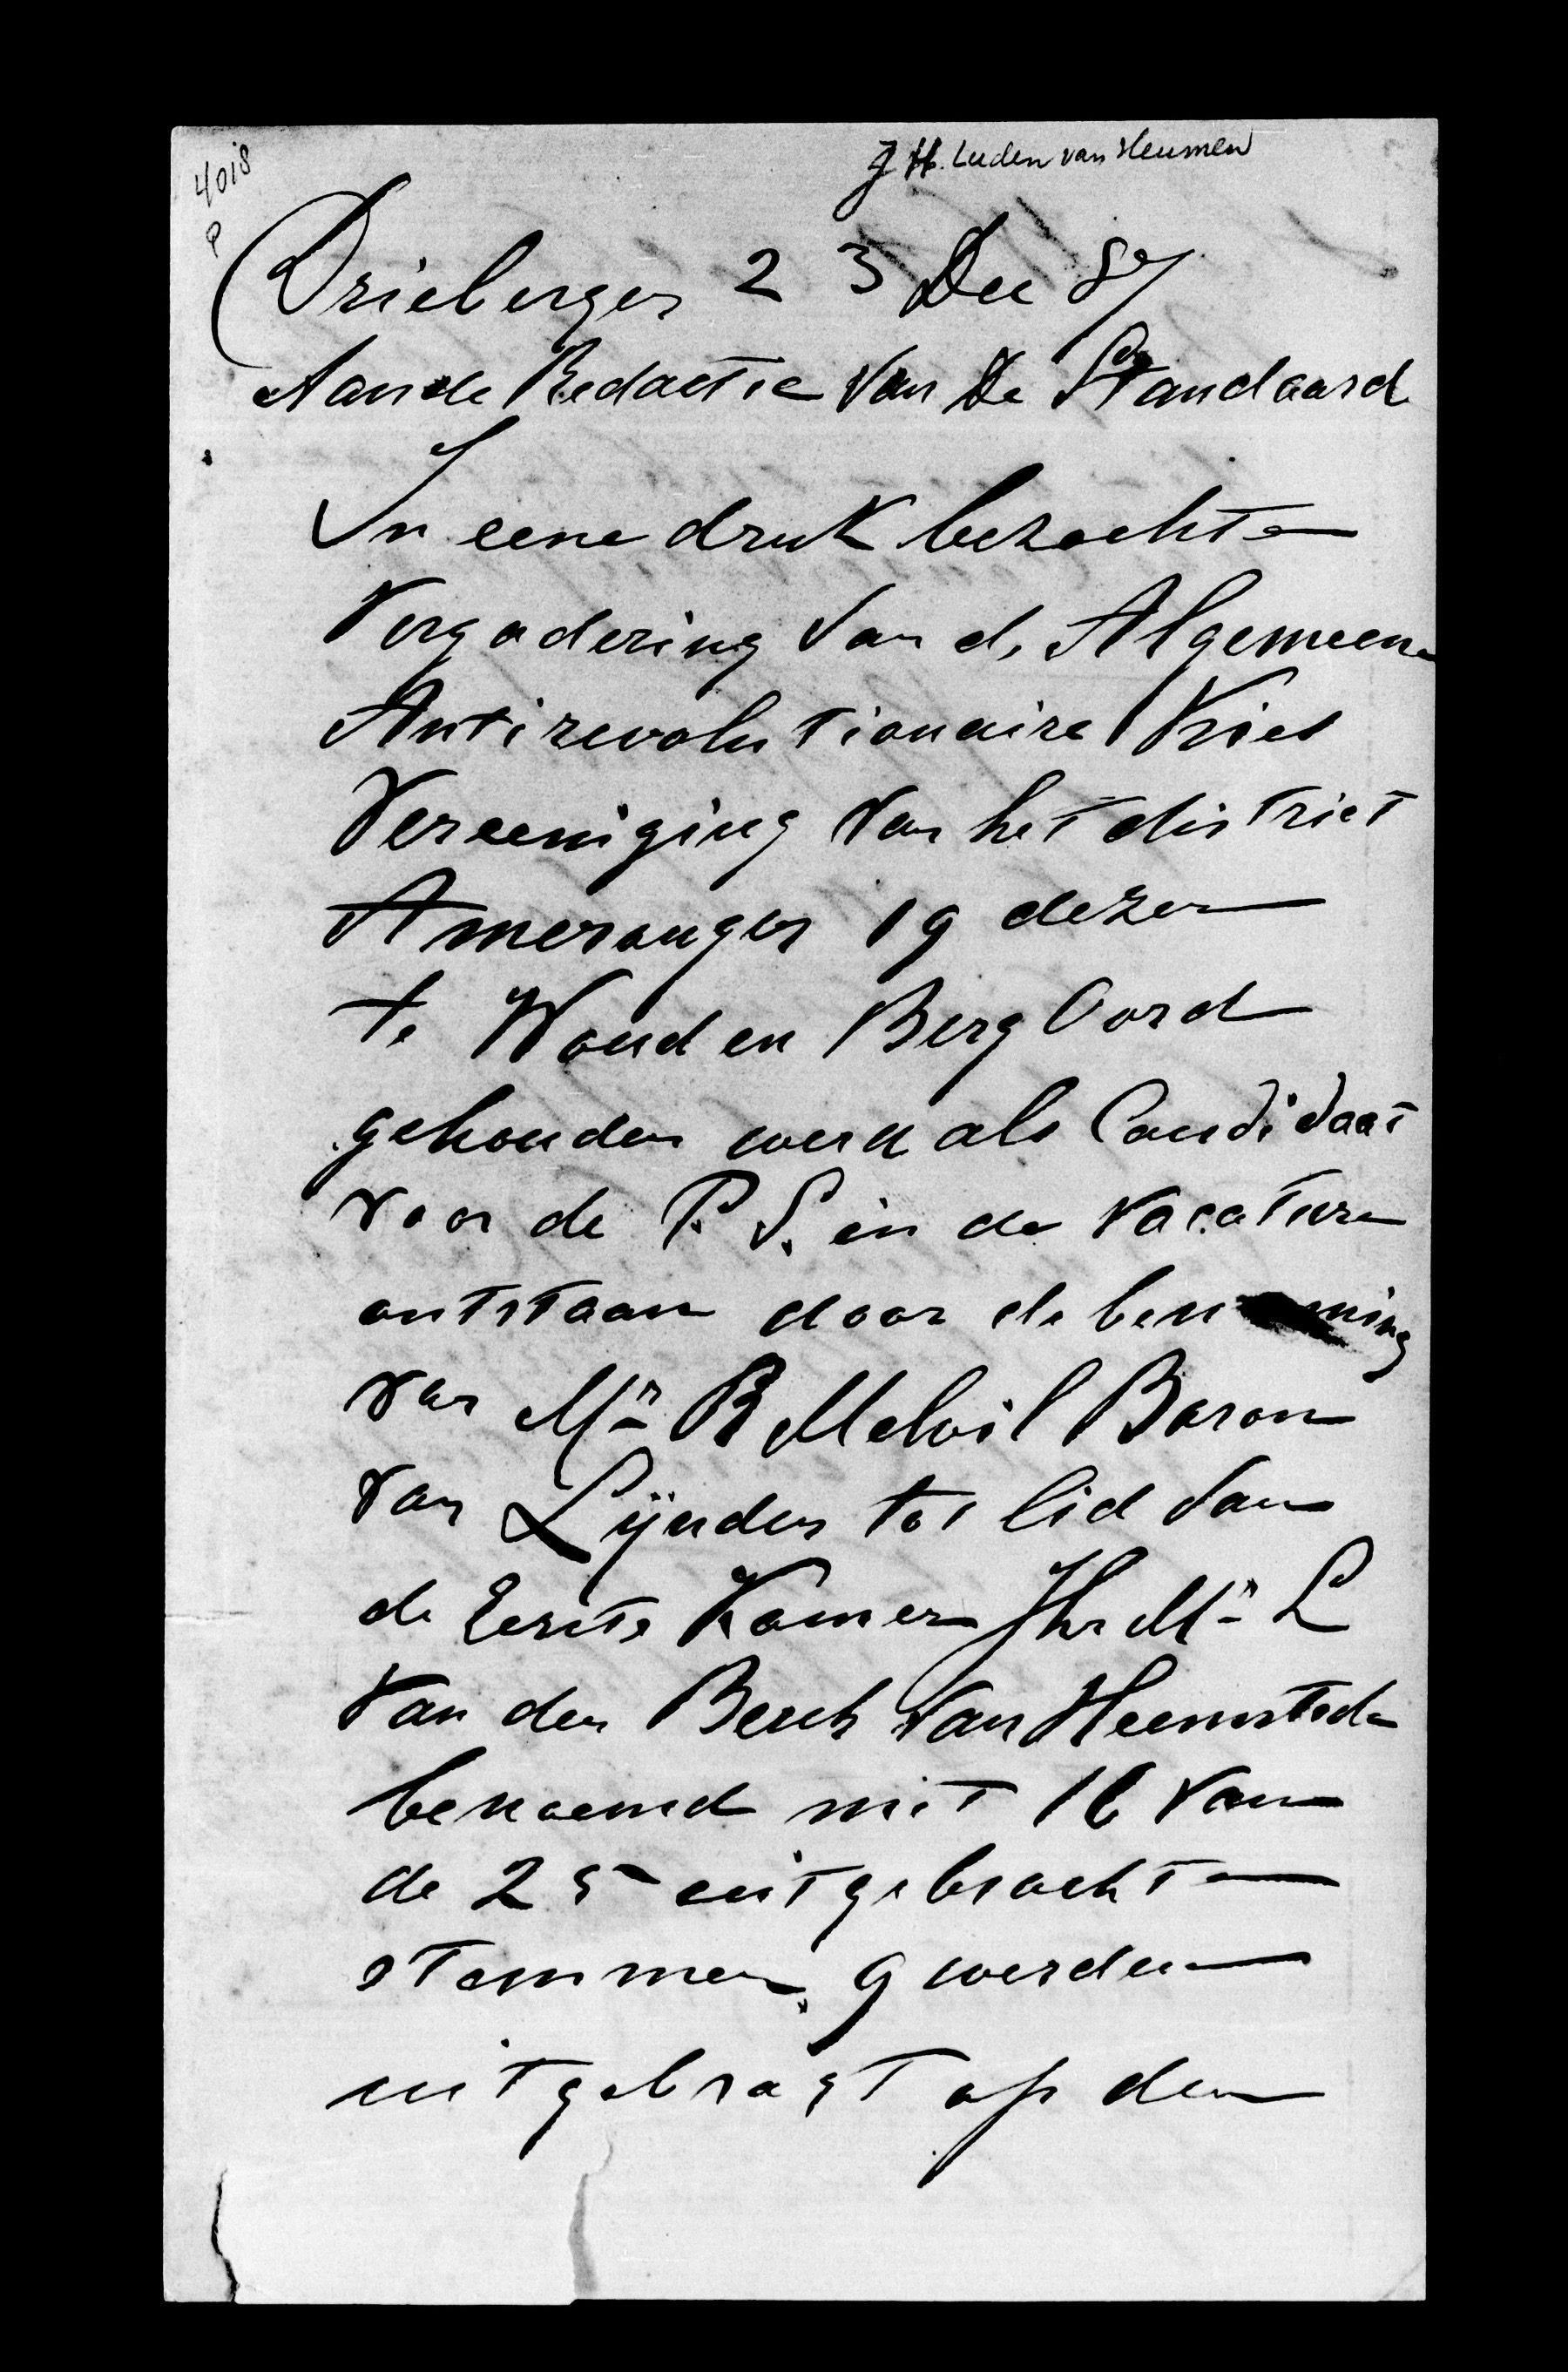 4018
P
J H. Luden van Heumen
Driebergen 23 Dec 87
Aan de Redactie van De Standaard
In eene druk bezochte
Vergadering van de Algemeene
Antirevolutionaire Kies
Vereeniging van het district
Amerongen 19 dezer
te Woudenberg Oord
gehouden werd als Candidaat
voor de P. S. in de vacature
ontstaan door de benoeming
van Mr R Melvil Baron
van Lijnden tot lid van
de Eerste Kamer Jhr Mr L
van den Berch van Heemstede
benoemd met 16 van
de 25 uitgebrachte
stemmen. 9 werden
uitgebragt op den